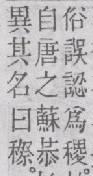 俗誤認爲稷
自唐之蘇恭
異其名曰穄